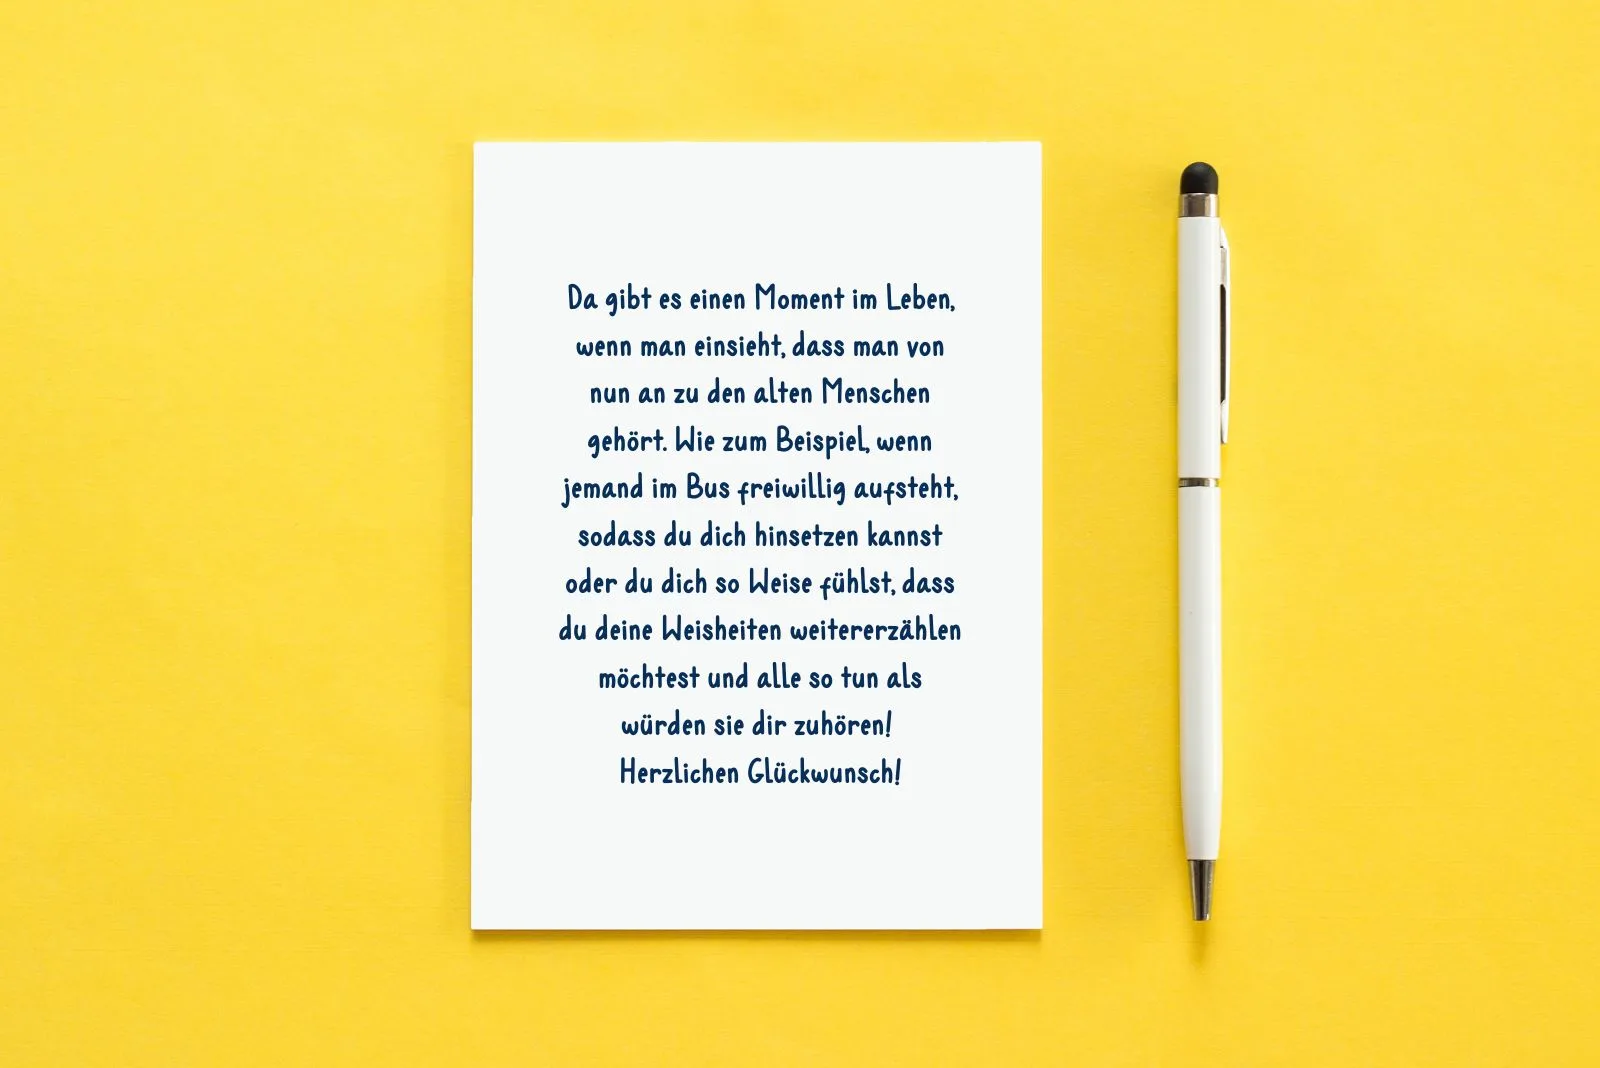 Da gibt es einen Moment im Leben,
wenn man einsieht, dass man von
nun an zu den alten Menschen
gehört. Wie zum Beispiel, wenn
jemand im Bus freiwillig aufsteht,
sodass du dich hinsetzen kannst
oder du dich so Weise fühlst, dass
du deine Weisheiten weitererzählen
möchtest und alle so tun als
würden sie dir zuhören!
Herzlichen Glückwunsch!